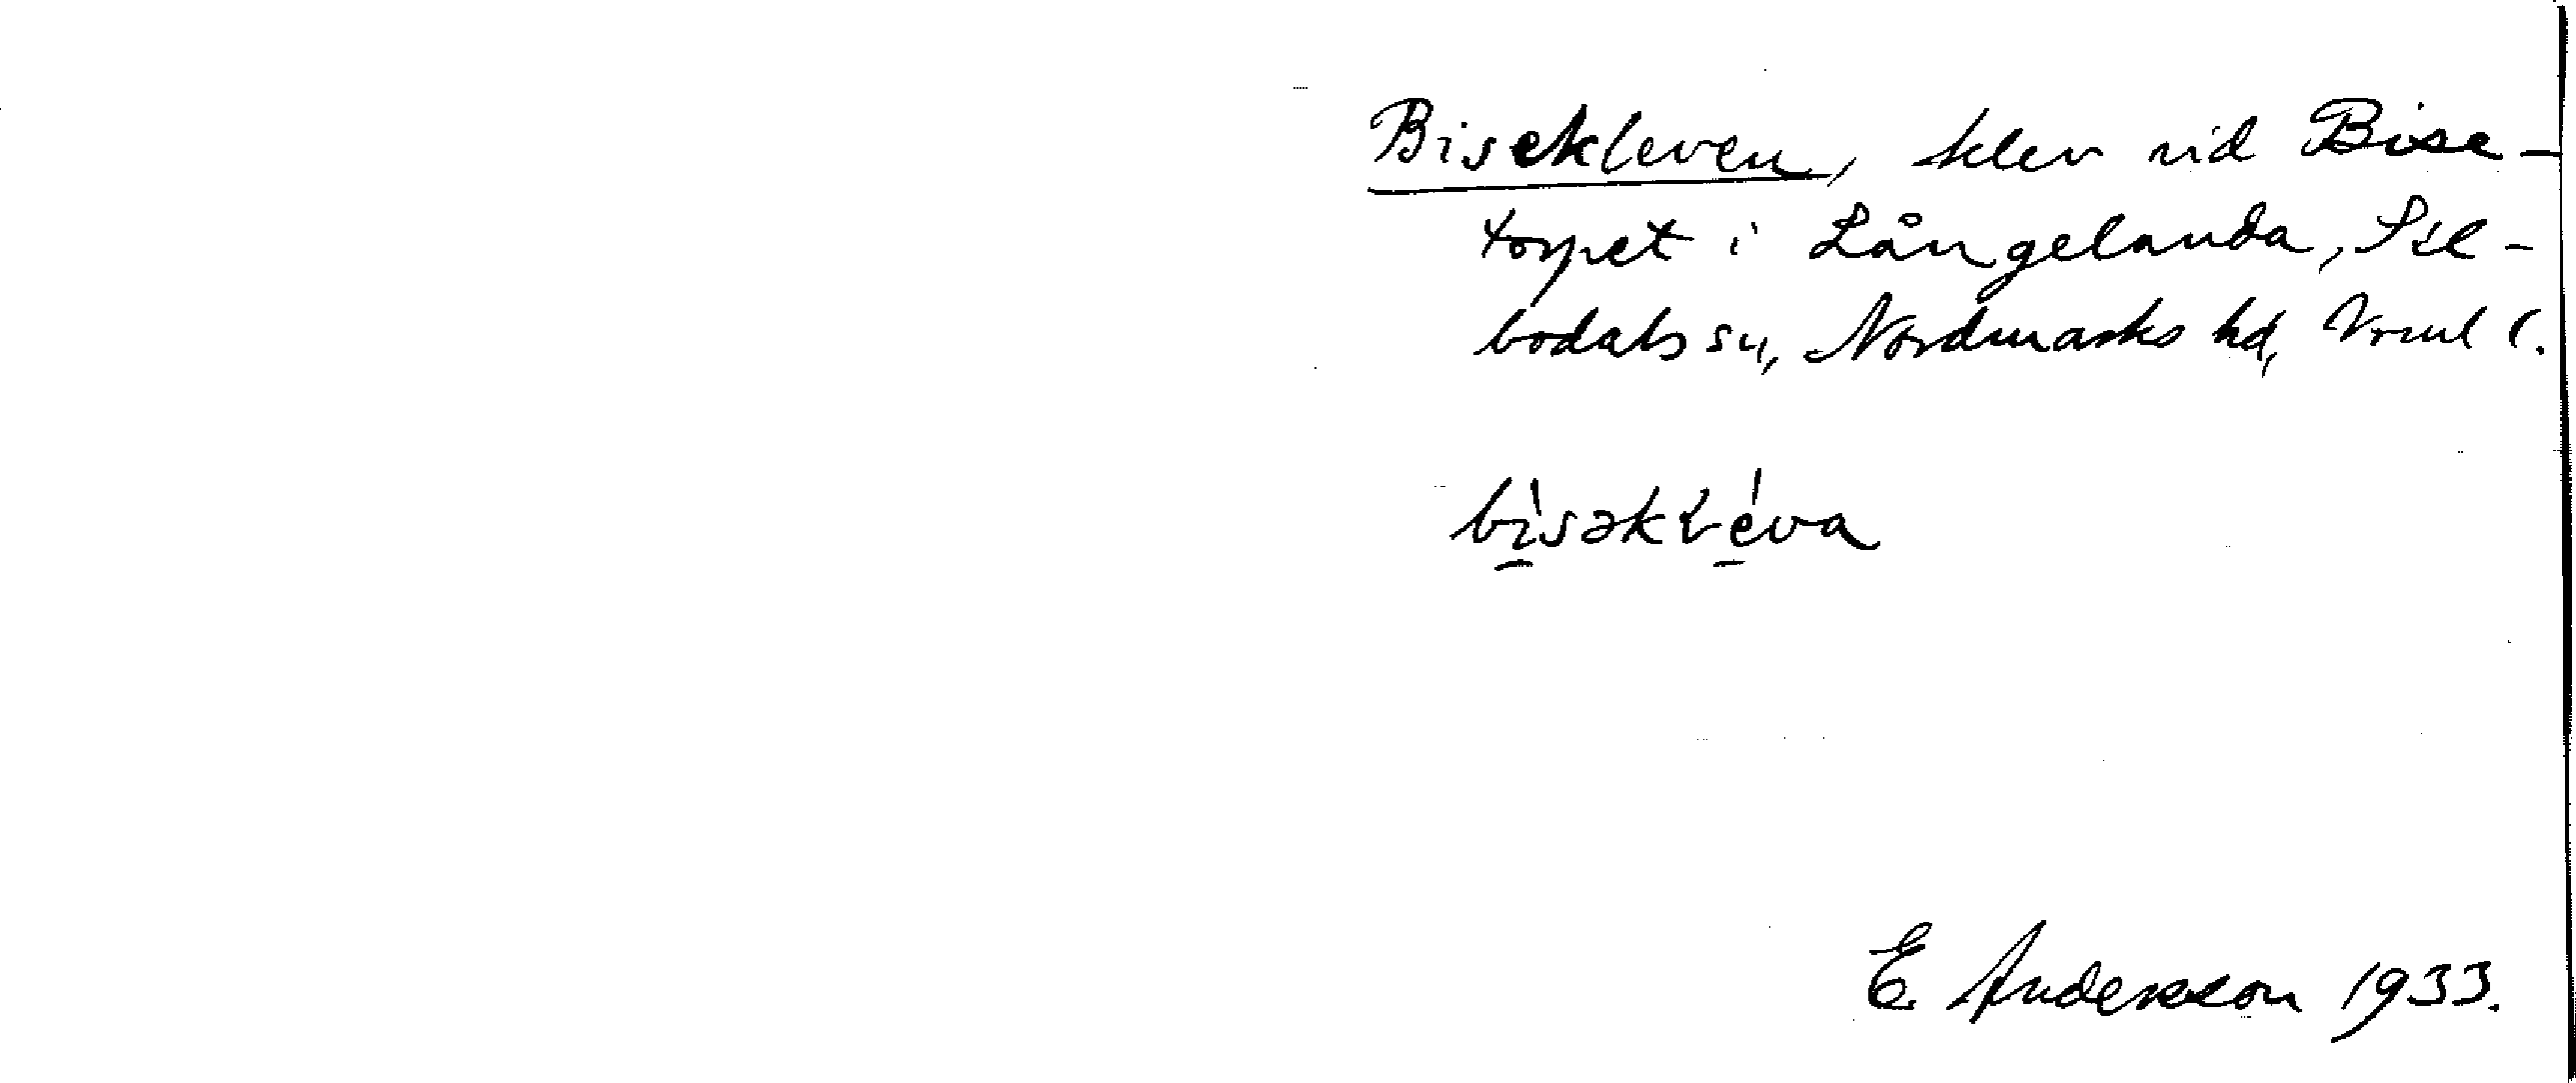 Bisekleven, klev vid Bise-
torpet i Långelanda, Sil-
bodals sn, Nordmarks hd, Vrml l.
bìsəkɽéva
E. Andersson 1933.